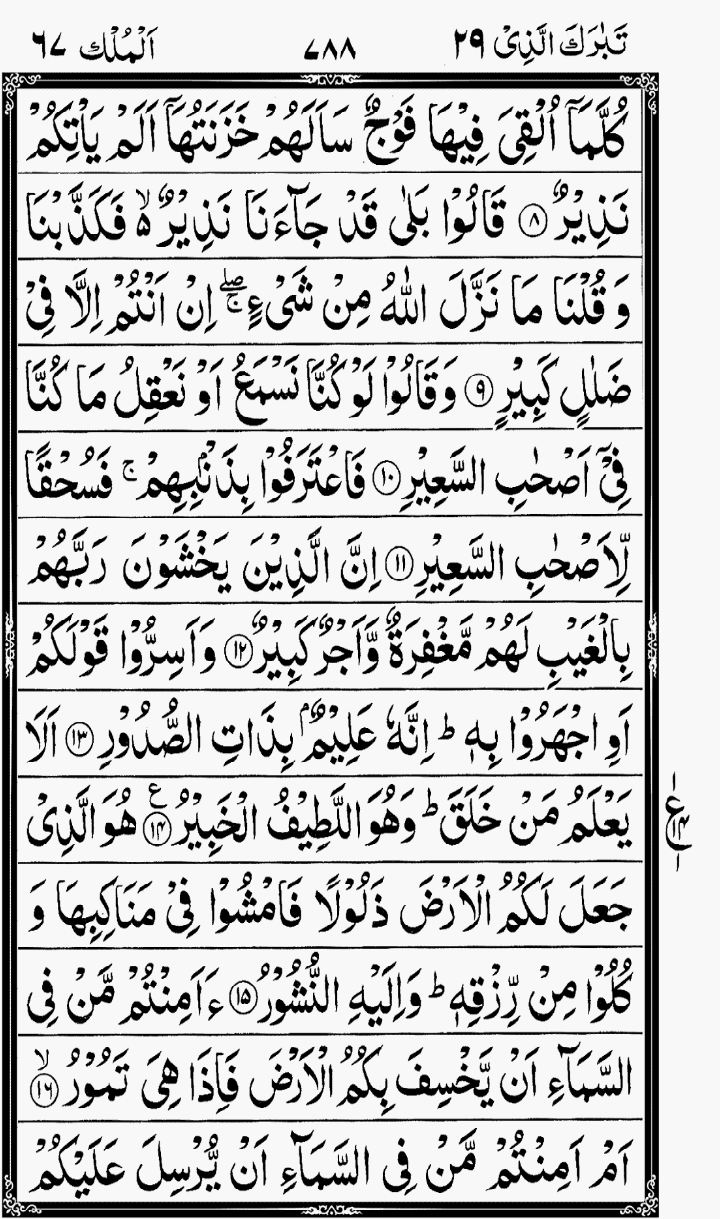 تَبٰرَكَ الَّذِیْ ٢٩ ٧٨٨ اَلْمُلْك ٦٧
كُلَّمَاۤ اُلْقِیَ فِیْهَا فَوْجٌ سَاَلَهُمْ خَزَنَتُهَاۤ اَلَمْ یَاْتِكُمْ
نَذِیْرٌ ﴿٨﴾ قَالُوْا بَلٰی قَدْ جَآءَنَا نَذِیْرٌ ۙ۬ فَكَذَّبْنَا
وَ قُلْنَا مَا نَزَّلَ اللّٰهُ مِنْ شَیْءٍ ۚۖ اِنْ اَنْتُمْ اِلَّا فِیْ
ضَلٰلٍ كَبِیْرٍ ﴿٩﴾ وَقَالُوْا لَوْ كُنَّا نَسْمَعُ اَوْ نَعْقِلُ مَا كُنَّا
فِیْۤ اَصْحٰبِ السَّعِیْرِ ﴿١٠﴾ فَاعْتَرَفُوْا بِذَنْۢبِهِمْ ۚ فَسُحْقًا
لِّاَصْحٰبِ السَّعِیْرِ ﴿١١﴾ اِنَّ الَّذِیْنَ یَخْشَوْنَ رَبَّهُمْ
بِالْغَیْبِ لَهُمْ مَّغْفِرَةٌ وَّاَجْرٌ كَبِیْرٌ ﴿١٢﴾ وَاَسِرُّوْا قَوْلَكُمْ
اَوِ اجْهَرُوْا بِهٖ ؕ اِنَّهٗ عَلِیْمٌۢ بِذَاتِ الصُّدُوْرِ ﴿١٣﴾ اَلَا
یَعْلَمُ مَنْ خَلَقَ ؕ وَهُوَ اللَّطِیْفُ الْخَبِیْرُ ﴿١٤﴾ ع هُوَ الَّذِیْ
ع ١ ١٤ ١
جَعَلَ لَكُمُ الْاَرْضَ ذَلُوْلًا فَامْشُوْا فِیْ مَنَاكِبِهَا وَ
كُلُوْا مِنْ رِّزْقِهٖ ؕ وَاِلَیْهِ النُّشُوْرُ ﴿١٥﴾ ءَاَمِنْتُمْ مَّنْ فِی
السَّمَآءِ اَنْ یَّخْسِفَ بِكُمُ الْاَرْضَ فَاِذَا هِیَ تَمُوْرُ ﴿١٦﴾ ۙ
اَمْ اَمِنْتُمْ مَّنْ فِی السَّمَآءِ اَنْ یُّرْسِلَ عَلَیْكُمْ